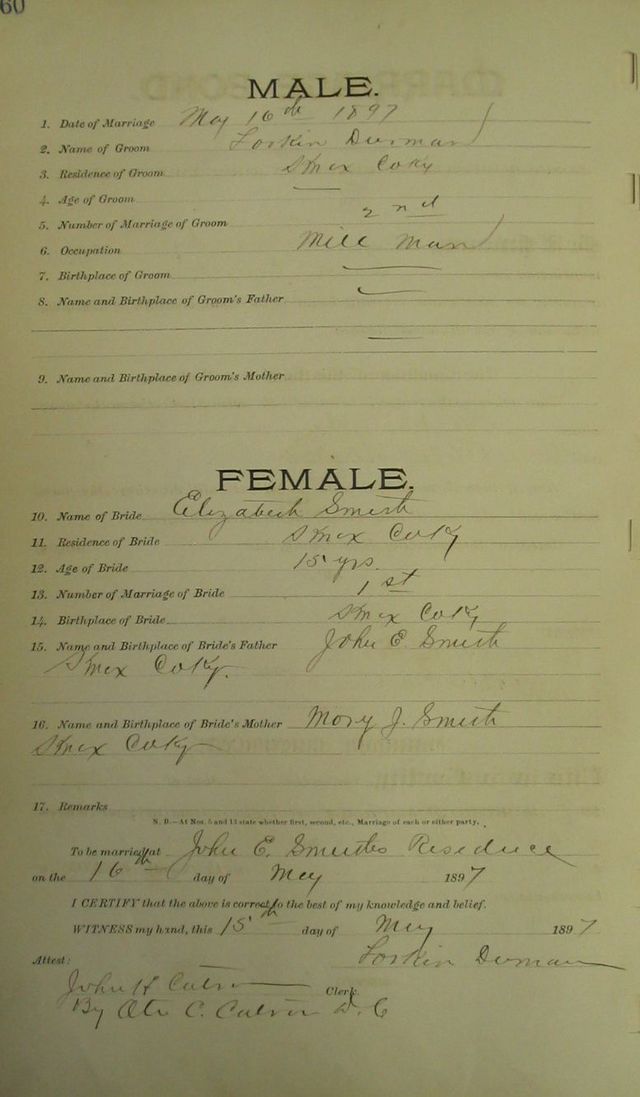 60
MALE.
1. Date of Marriage May 16th 1897
2. Name of Groom Loskin Durman
3. Residence of Groom Knox Co Ky
4. Age of Groom —
5. Number of Marriage of Groom 2nd
6. Occupation Mill Man
7. Birthplace of Groom —
8. Name and Birthplace of Groom's Father —
—
9. Name and Birthplace of Groom's Mother
FEMALE.
10. Name of Bride Elizabeth Smith
11. Residence of Bride Knox Co Ky
12. Age of Bride 15 yrs.
13. Number of Marriage of Bride 1st
14. Birthplace of Bride Knox Co Ky
15. Name and Birthplace of Bride's Father John E. Smith
Knox Co Ky.
16. Name and Birthplace of Bride's Mother Mary J. Smith
Knox Co Ky
17. Remarks
N. B.—At Nos. 5 and 13 state whether first, second, etc., Marriage of each or either party.
To be married at John E. Smiths Residence
on the 16th day of May 1897
I CERTIFY that the above is correct to the best of my knowledge and belief.
WITNESS my hand, this 15th day of May 1897
Loskin Durman
Attest:
John H Catron Clerk.
By C. Catron D. C